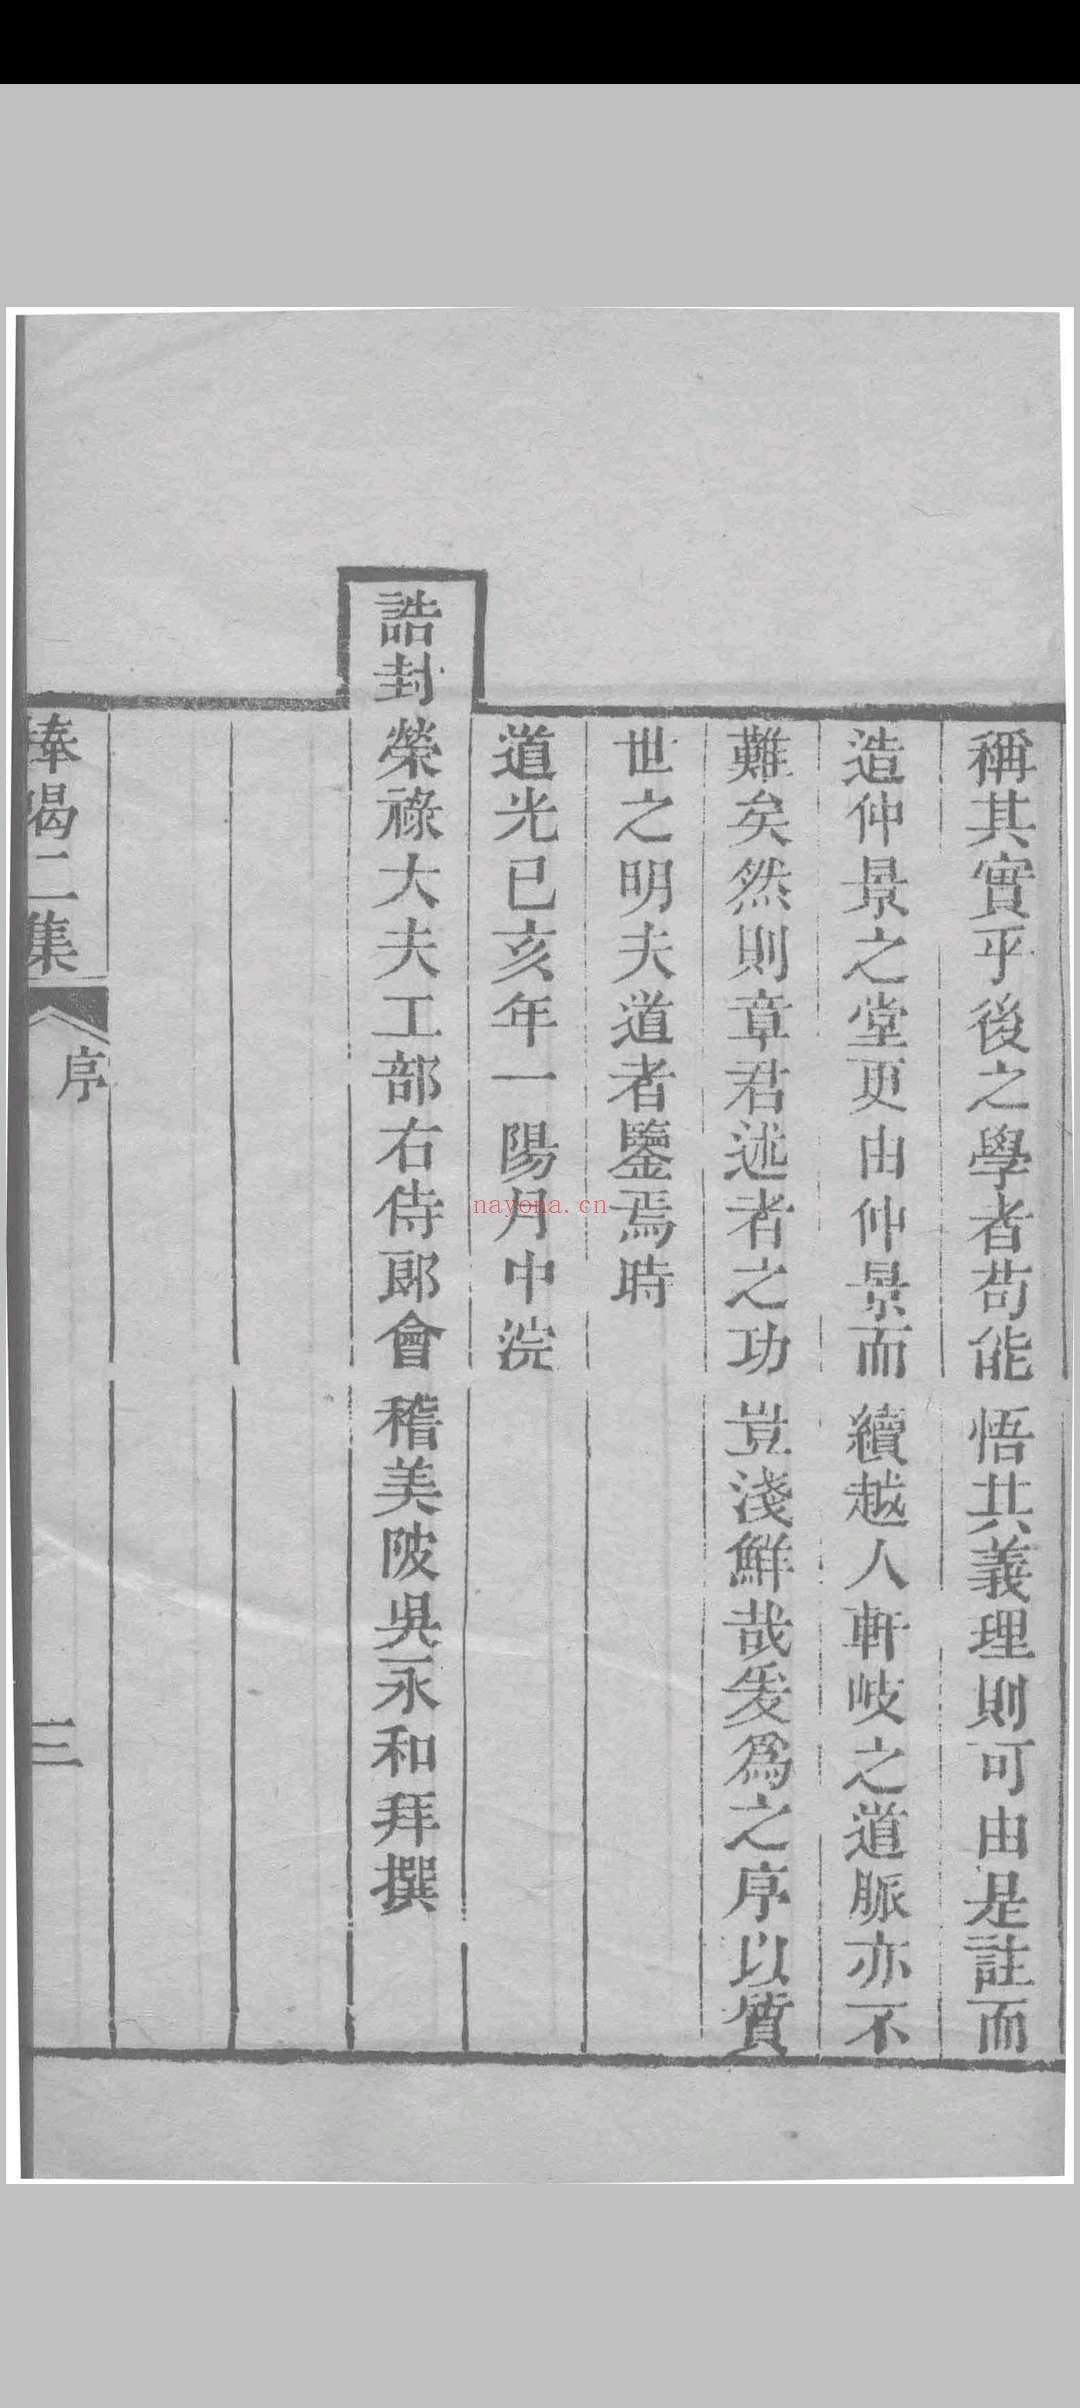 稱其實乎後之學者苟能悟其義理則可由是註而
造仲景之堂更由仲景而續越人軒岐之道脈亦不
難矣然則章君述者之功豈淺鮮哉爰爲之序以質
世之明夫道者鑒焉時
道光已亥年一陽月中浣
誥封榮祿大夫工部右侍郎會稽美陂吳永和拜撰
棒喝二集
序
三
nayona.cn